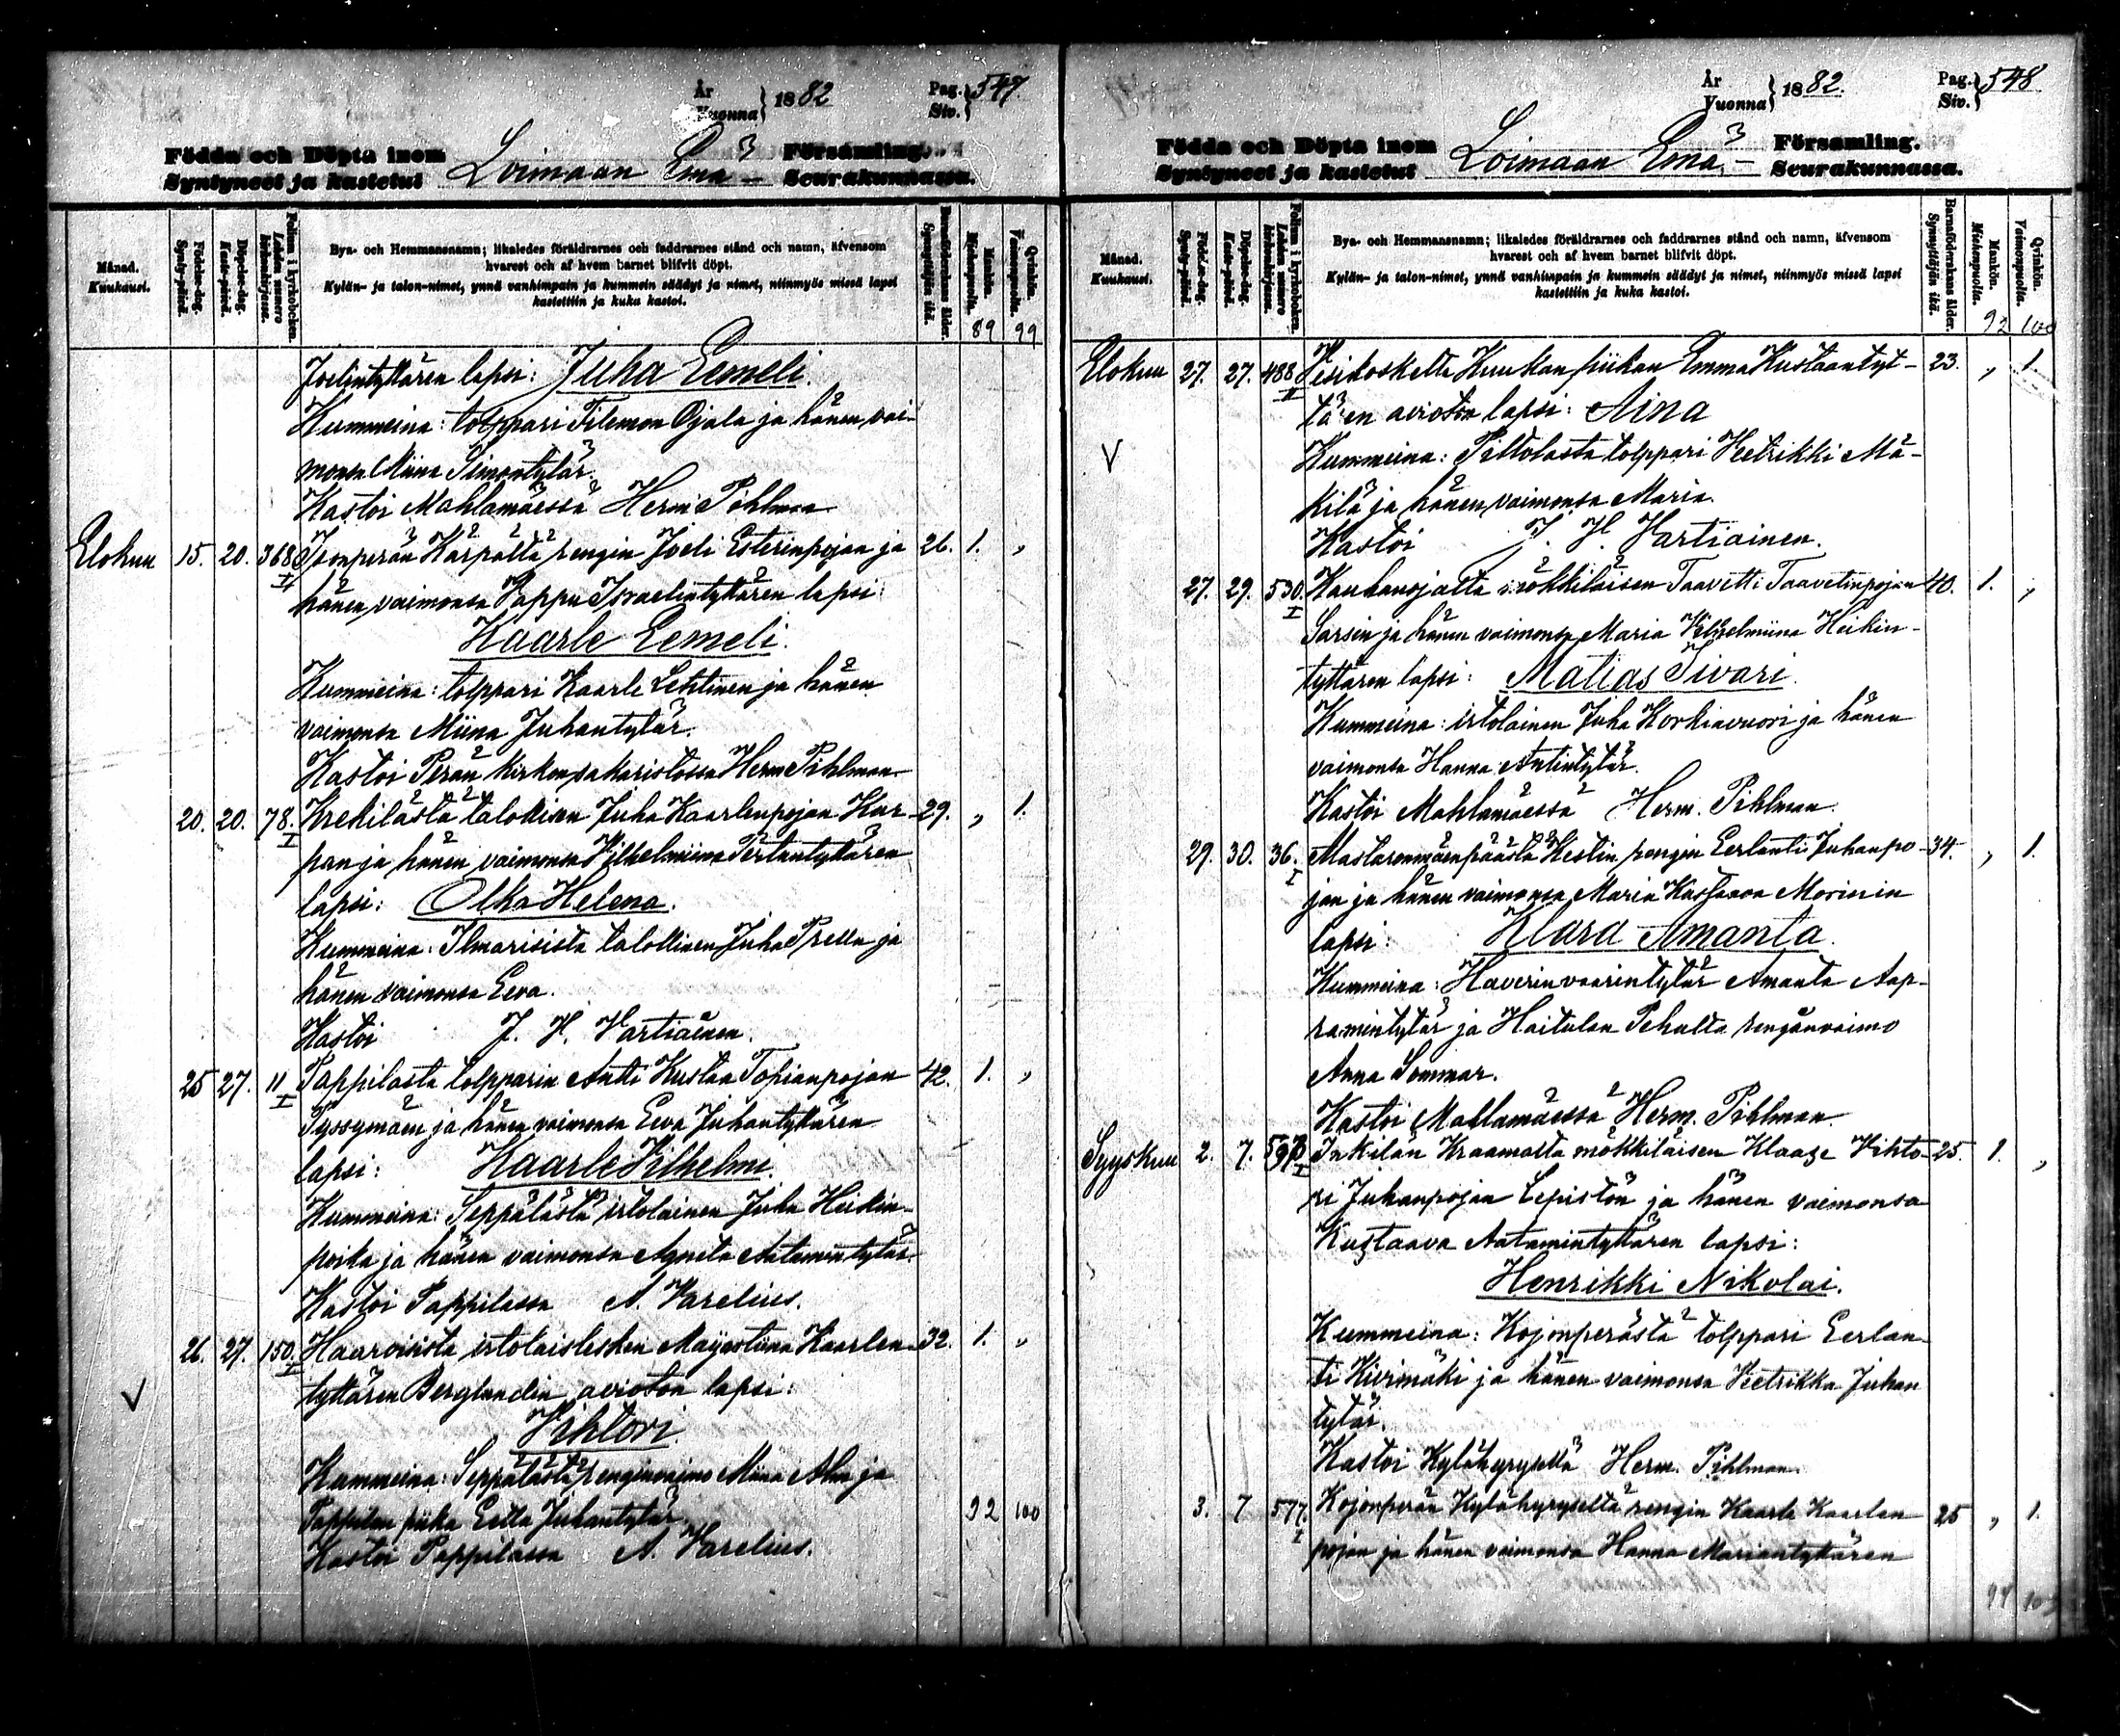 År
Vuonna } 1882
Pag.
Siv. } 547.
Födda och Döpta inom
Syntyneet ja kastetut
Loimaan Emä
Församling.
Seurakunnassa.
Månad.
Kuukausi.
Födelse-dag.
Synty-päivä.
Döpelse-dag.
Kaste-päivä.
Folium i kyrkoboken.
Lehden numero kirkonkirjassa.
Bya- och Hemmansnamn; likaledes föräldrarnes och faddrarnes stånd och namn, äfvensom
hvarest och af hvem barnet blifvit döpt.
Kylän- ja talon-nimet, ynnä vanhimpain ja kummein säädyt ja nimet, niinmyös missä lapsi
kastettiin ja kuka kastoi.
Barnaföderskans ålder.
Synnyttäjän ikä.
Mankön.
Miehenpuolta.
Qvinkön.
Vaimonpuolta.
89 99
Joelintyttären lapsi: Juha Eemeli.
Kummeina: torppari Filemon Ojala ja hänen vai-
monsa Miina Simontytär.
Kastoi Mahlamäessä Herm. Pihlman
Elokuu 15. 20. 368 II Isonperän Karpalta rengin Joeli Esterinpojan ja 26. 1. „
hänen vaimonsa Pappu Israelintyttären lapsi:
Kaarle Eemeli.
Kummeina: torppari Kaarle Lehtinen ja hänen
vaimonsa Miina Juhantytär.
Kastoi Perän kirkon sakaristossa Herm Pihlman
20. 20. 78. I Krekilästä talollisen Juha Kaarlenpojan Kur- 29. „ 1.
pan ja hänen vaimonsa Vilhelmiina Pertuntyttären
lapsi: Olka Helena.
Kummeina: Ilmarisista talollinen Juha Prella ja
hänen vaimonsa Eeva.
Kastoi J. H. Vartiainen.
25 27. 11 I Pappilasta torpparin Antti Kustaa Topianpojan 42. 1. „
Pyssymäen ja hänen vaimonsa Eeva Juhantyttären
lapsi: Kaarle Vilhelmi.
Kummeina: Seppälästä irtolainen Juha Heikin-
poika ja hänen vaimonsa Agneta Aatamintytär.
Kastoi Pappilassa A. Varelius.
26. 27. 150. I Haaroisista irtolaislesken Majastiina Kaarlen- 32. 1. „
tyttären Berglundin avioton lapsi:
Vihtori.
V
Kummeina: Seppälästä renginvaimo Miina Alm ja
Pappilan piika Eetla Juhantytär.
92 100
Kastoi Pappilassa A. Varelius.
År
Vuonna } 1882.
Pag.
Siv. } 548
Födda och Döpta inom
Syntyneet ja kastetut
Loimaan Emä
Församling.
Seurakunnassa.
Månad.
Kuukausi.
Födelse-dag.
Synty-päivä.
Döpelse-dag.
Kaste-päivä.
Folium i kyrkoboken.
Lehden numero kirkonkirjassa.
Bya- och Hemmansnamn; likaledes föräldrarnes och faddrarnes stånd och namn, äfvensom
hvarest och af hvem barnet blifvit döpt.
Kylän- ja talon-nimet, ynnä vanhimpain ja kummein säädyt ja nimet, niinmyös missä lapsi
kastettiin ja kuka kastoi.
Barnaföderskans ålder.
Synnyttäjän ikä.
Mankön.
Miehenpuolta.
Qvinkön.
Vaimonpuolta.
92 100
Elokuu 27. 27. 488 II Vesikoskelta Kuukan piikan Emma Kustaantyt- 23. „ 1.
tären avioton lapsi: Aina
V
Kummeina: Piltolasta torppari Veetrikki Mä-
kilä ja hänen vaimonsa Maria.
Kastoi J. H. Vartiainen.
27. 29. 530. I Kauhanojalta mökkiläisen Taavetti Taavetinpojan 40. 1. „
Sarsin ja hänen vaimonsa Maria Vilhelmiina Heikin-
tyttären lapsi: Matias Iivari.
Kummeina: irtolainen Juha Korkiavuori ja hänen
vaimonsa Hanna Antintytär.
Kastoi Mahlamäessä Herm. Pihlman.
29. 30. 36. I Mastarenmäenpäästä Hestin rengin Eerlanti Juhanpo- 34. „ 1.
jan ja hänen vaimonsa Maria Kustaava Morinin
lapsi: Klara Amanta.
Kummeina: Haverin vaarintytär Amanta Aap-
ramintytär ja Haitulan Pehulta renginvaimo
Anna Sommar.
Kastoi Mahlamäessä Herm. Pihlman.
Syyskuu 2. 7. 597 I Inkilän Kraamalta mökkiläisen Klaaze Vihto- 25. 1. „
ri Juhanpojan Lepistön ja hänen vaimonsa
Kustaava Aatamintyttären lapsi:
Henrikki Nikolai.
Kummeina: Kojonperästä torppari Eerlan-
ti Kivimäki ja hänen vaimonsa Veetrikka Juhan
tytär.
Kastoi Kylähyryseltä Herm. Pihlman.
3. 7 577. I Kojonperän Kylähyryseltä rengin Kaarle Kaarlen 25 „ 1.
pojan ja hänen vaimonsa Hanna Mariantyttären
94